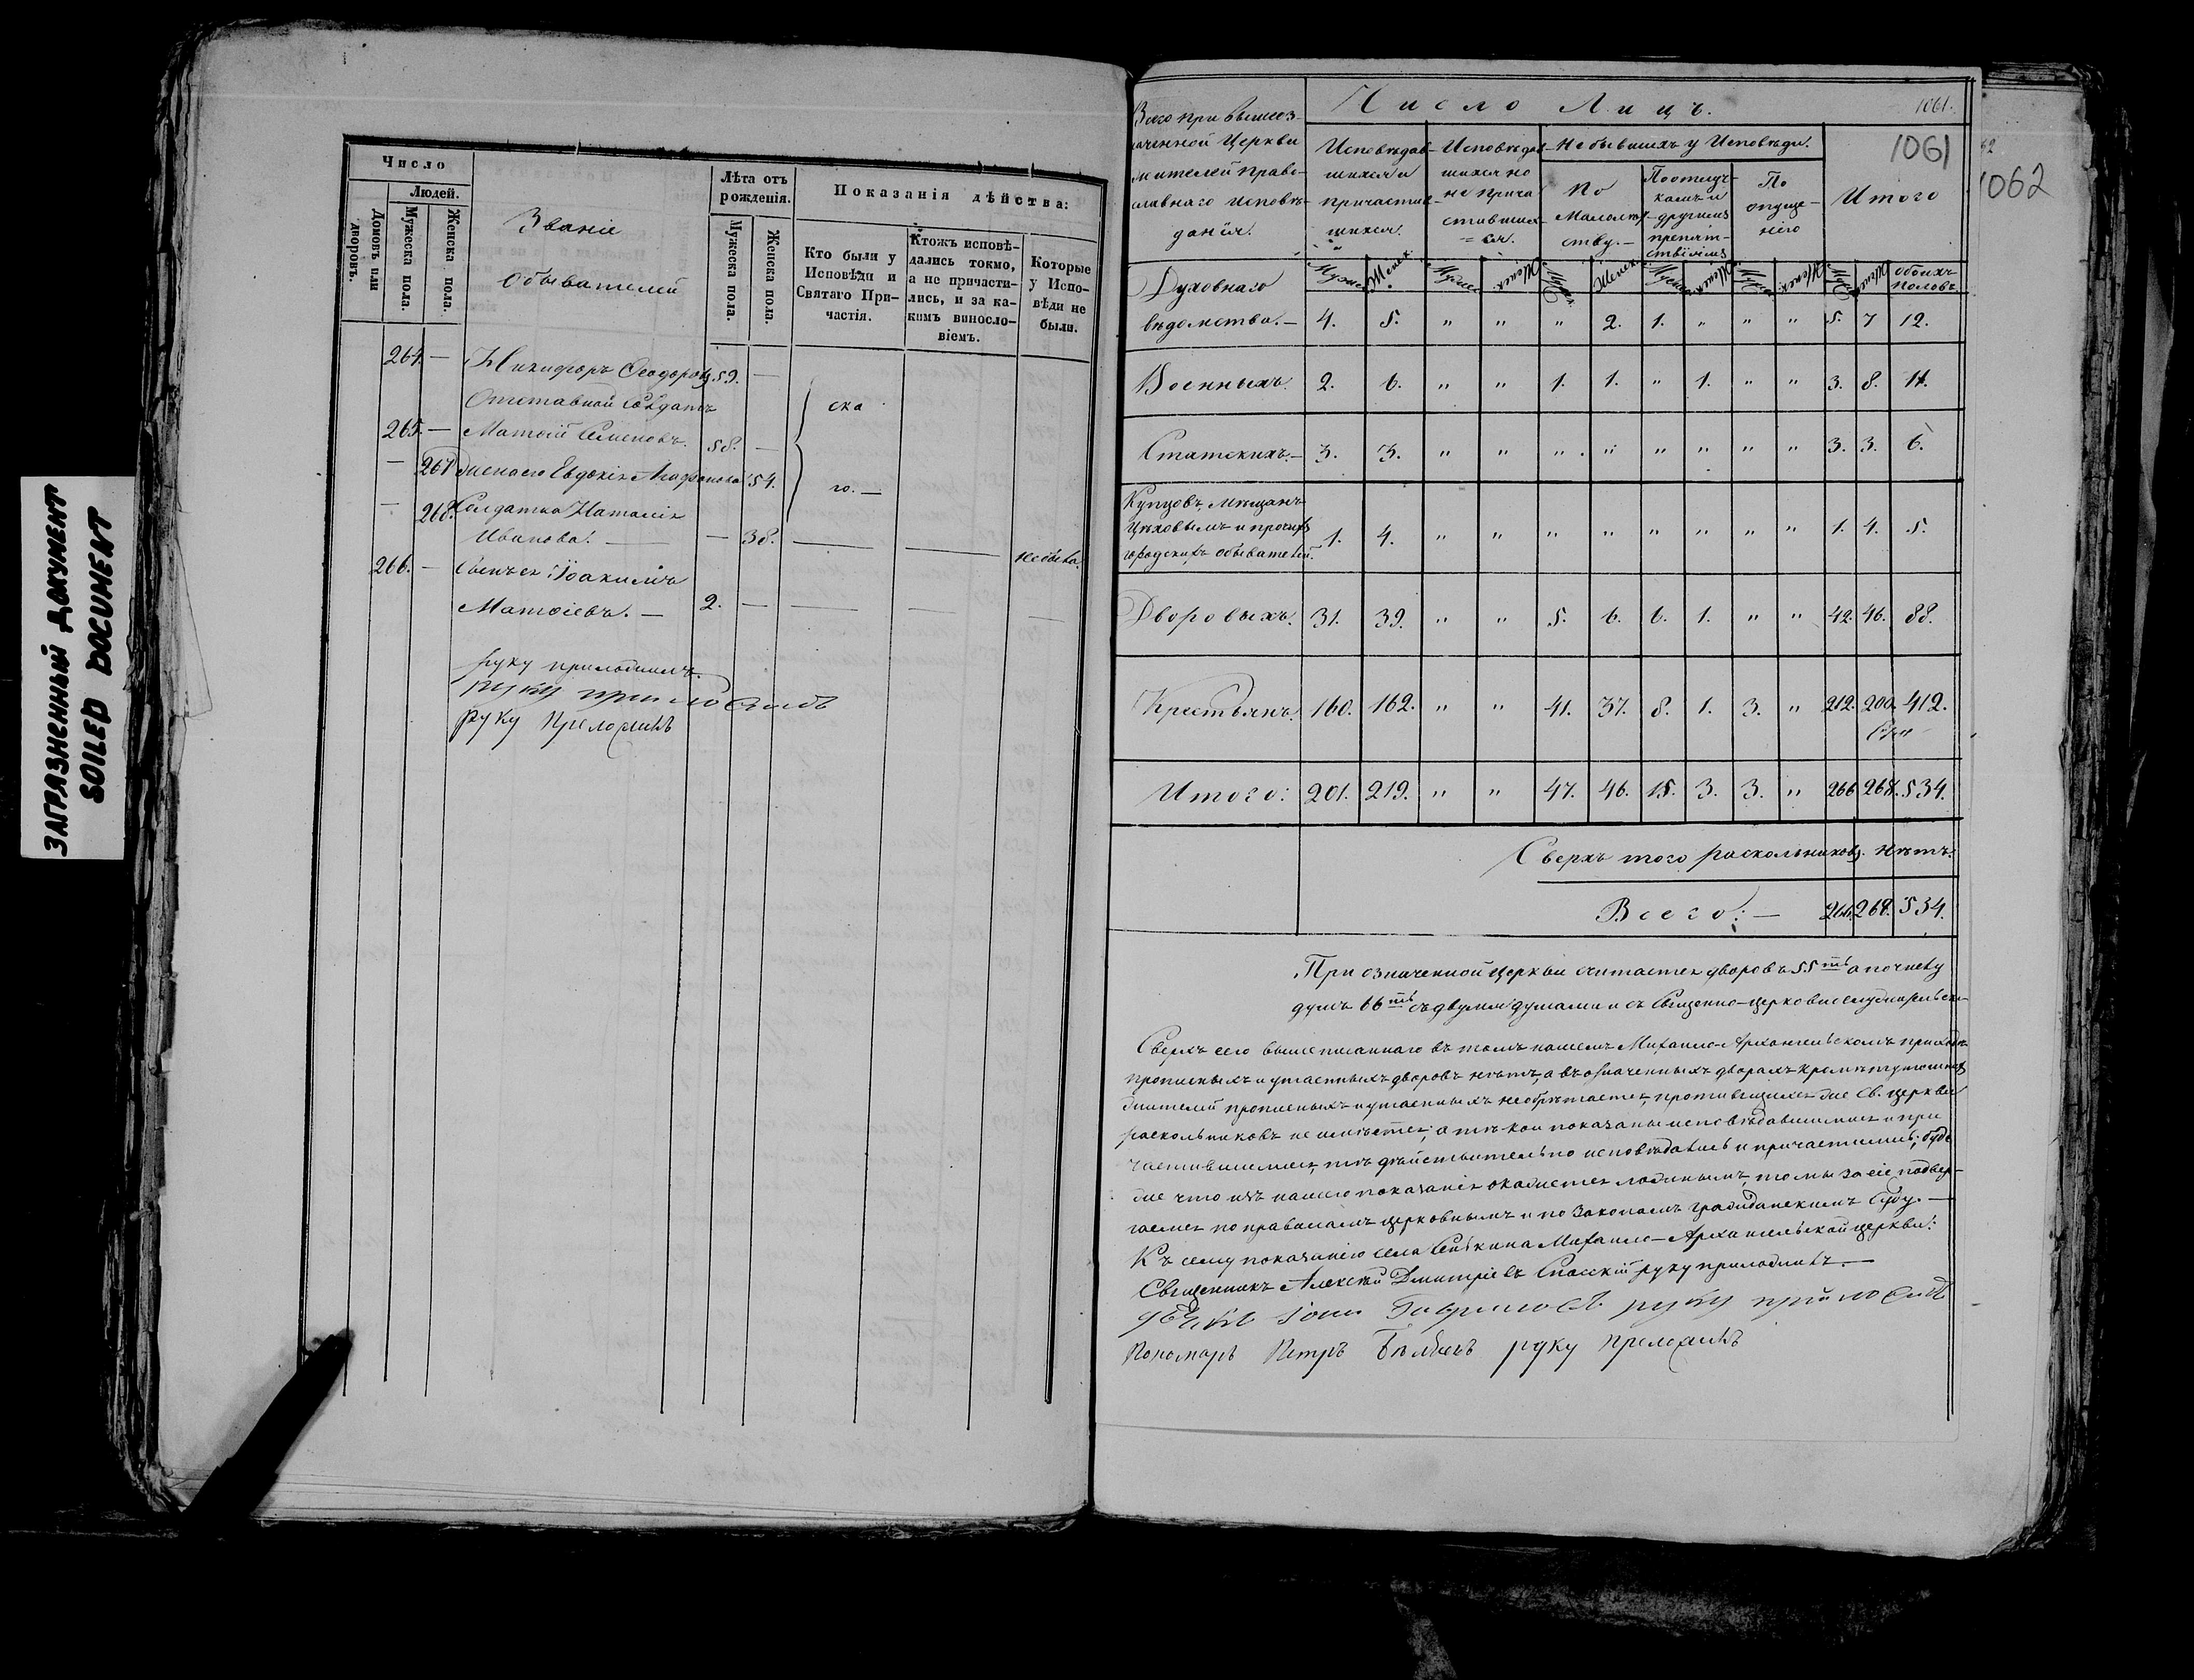 ЗАГРЯЗНЕННЫЙ ДОКУМЕНТ
SOILED DOCUMENT
Число
Домовъ или дворовъ.
Людей.
Мужеска пола.
Женска пола.
Званіе
Обывателей
Лѣта отъ рожденія.
Мужеска пола.
Женска пола.
Показанія дѣйства:
Кто были у Исповѣди и Святаго Причастія.
Ктожъ исповѣдались токмо, а не причастились, и за какимъ винословіемъ.
Которые у Исповѣди не были.
264. — Никифоръ Ѳеодоровъ 59. —
Отставной Солдатъ
265. — Матѳій Семеновъ. 58. —
— 267 Жена его Евдокія Агафонова 54.
ска
го. —
— 268. Солдатка Наталія
Иванова. — — 38. — — не была.
266. — Сынъ ея Іоакимъ
Матѳіевъ. — 2. — — — —
руку приложилъ.
руку приложилъ
руку приложилъ
Всего при вышеозначенной Церкви жителей православнаго исповѣданія.
Число Лицъ.
1061.
1061
1062
Исповѣдавшихся и причастившихся.
Исповѣдавшихся но не причастившихся.
Не бывшихъ у Исповѣди.
По Малолѣтству. —
По отлучкамъ и другимъ препятствіямъ
По опущенію
Итого
обоихъ половъ.
Духовнаго
вѣдомства. — 4. 5. " " " 2. 1. " " " 5. 7 12.
Военныхъ. 2. 6. " " 1. 1. " 1. " " 3. 8. 11.
Статскихъ. — 3. 3. " " " " " " " " 3. 3. 6.
Купцовъ, мѣщанъ
Цѣховымъ и прочихъ
городскихъ обывателей. 1. 4. " " " " " " " " 1. 4. 5.
Дворовыхъ. 31. 39. " " 5. 6. 6. 1. " " 42. 46. 88.
Крестьянъ. 160. 162. " " 41. 37. 8. 1. 3. " 212. 200. 412.
Итого: 201. 219. " " 47. 46. 15. 3. 3. " 266 268. 534.
Сверхъ того раскольниковъ. нѣтъ.
Всего: — 266. 268. 534.
При означенной церкви считается дворовъ 55ть а по числу
душъ 66ть съ двумя душами и съ Священно-церковно
Сверхъ сего вышеписаннаго въ томъ нашемъ Михаило-Архангельскомъ приходѣ
прописныхъ и утаенныхъ дворовъ нѣтъ, а въ означенныхъ дворахъ кромѣ
жителей прописныхъ и утаенныхъ не обрѣтается, противящихся же Св. церкви
раскольниковъ не имѣется; а тѣ кои показаны исповѣдавшимися и при
частившимися, тѣ дѣйствительно исповѣдались и причастились; буде
же что изъ нашего показанія окажется ложнымъ, то мы за сіе подвер-
гаемся по правиламъ церковнымъ и по Законамъ гражданскимъ Суду. —
Къ сему показанію села Сенькина Михаило-Архангельской церкви:
Священникъ Алексѣй Дмитріевъ Спасскій руку приложилъ. —
руку приложилъ
Пономарь Петръ руку приложилъ